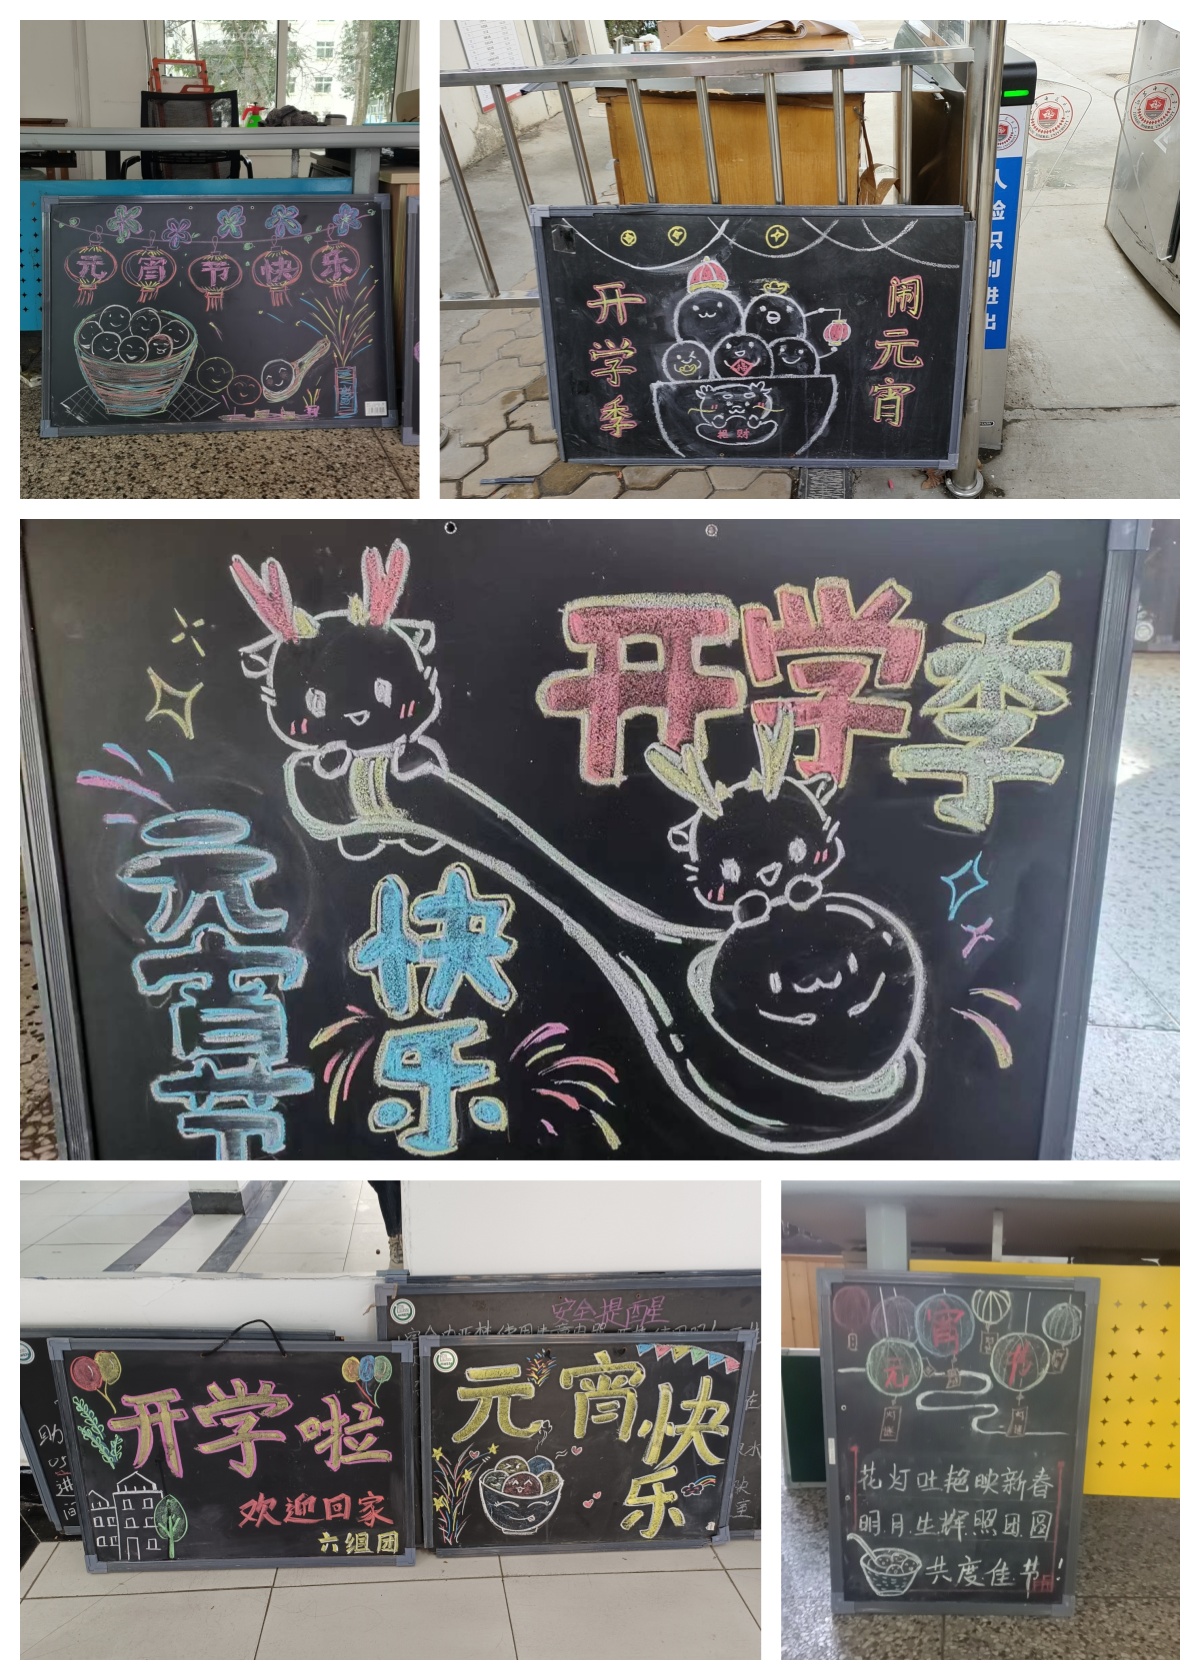 元宵节快乐
开学季
闹元宵
招财
人脸识别进出
开学季
元宵节
快乐
安全提醒
开学啦
欢迎回家
六组团
元宵快乐
元宵
花灯吐艳映新春
明月生辉照团圆
共度佳节!